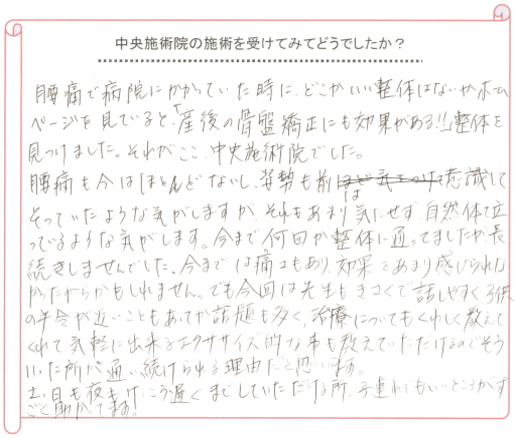 中央施術院の施術を受けてみてどうでしたか？
腰痛で病院にかかっていた時に、どこかいい整体はないかホーム
ページを見ていると、「産後の骨盤矯正にも効果がある!!」整体を
見つけました。それがここ、中央施術院でした。
腰痛も今はほとんどないし、姿勢も前は意識して
そっていたような気がしますが、それもあまり気にせず、自然体で立
っているような気がします。今まで何回か整体に通ってましたが、長
続きしませんでした。今までは痛みもあり、効果をあまり感じられな
かったからかもしれません。でも今回は先生もきさくで話しやすく、子供
の年令が近いこともあってか話題も多く、治療についてもくわしく教えて
くれて気軽に出来るエクササイズ的な事も教えていただけるのでそう
いった所が通い続けられる理由だと思います。
土・日も夜もけっこう遅くまでしていただける所、子連れでもいいところがす
ごく助かってます！